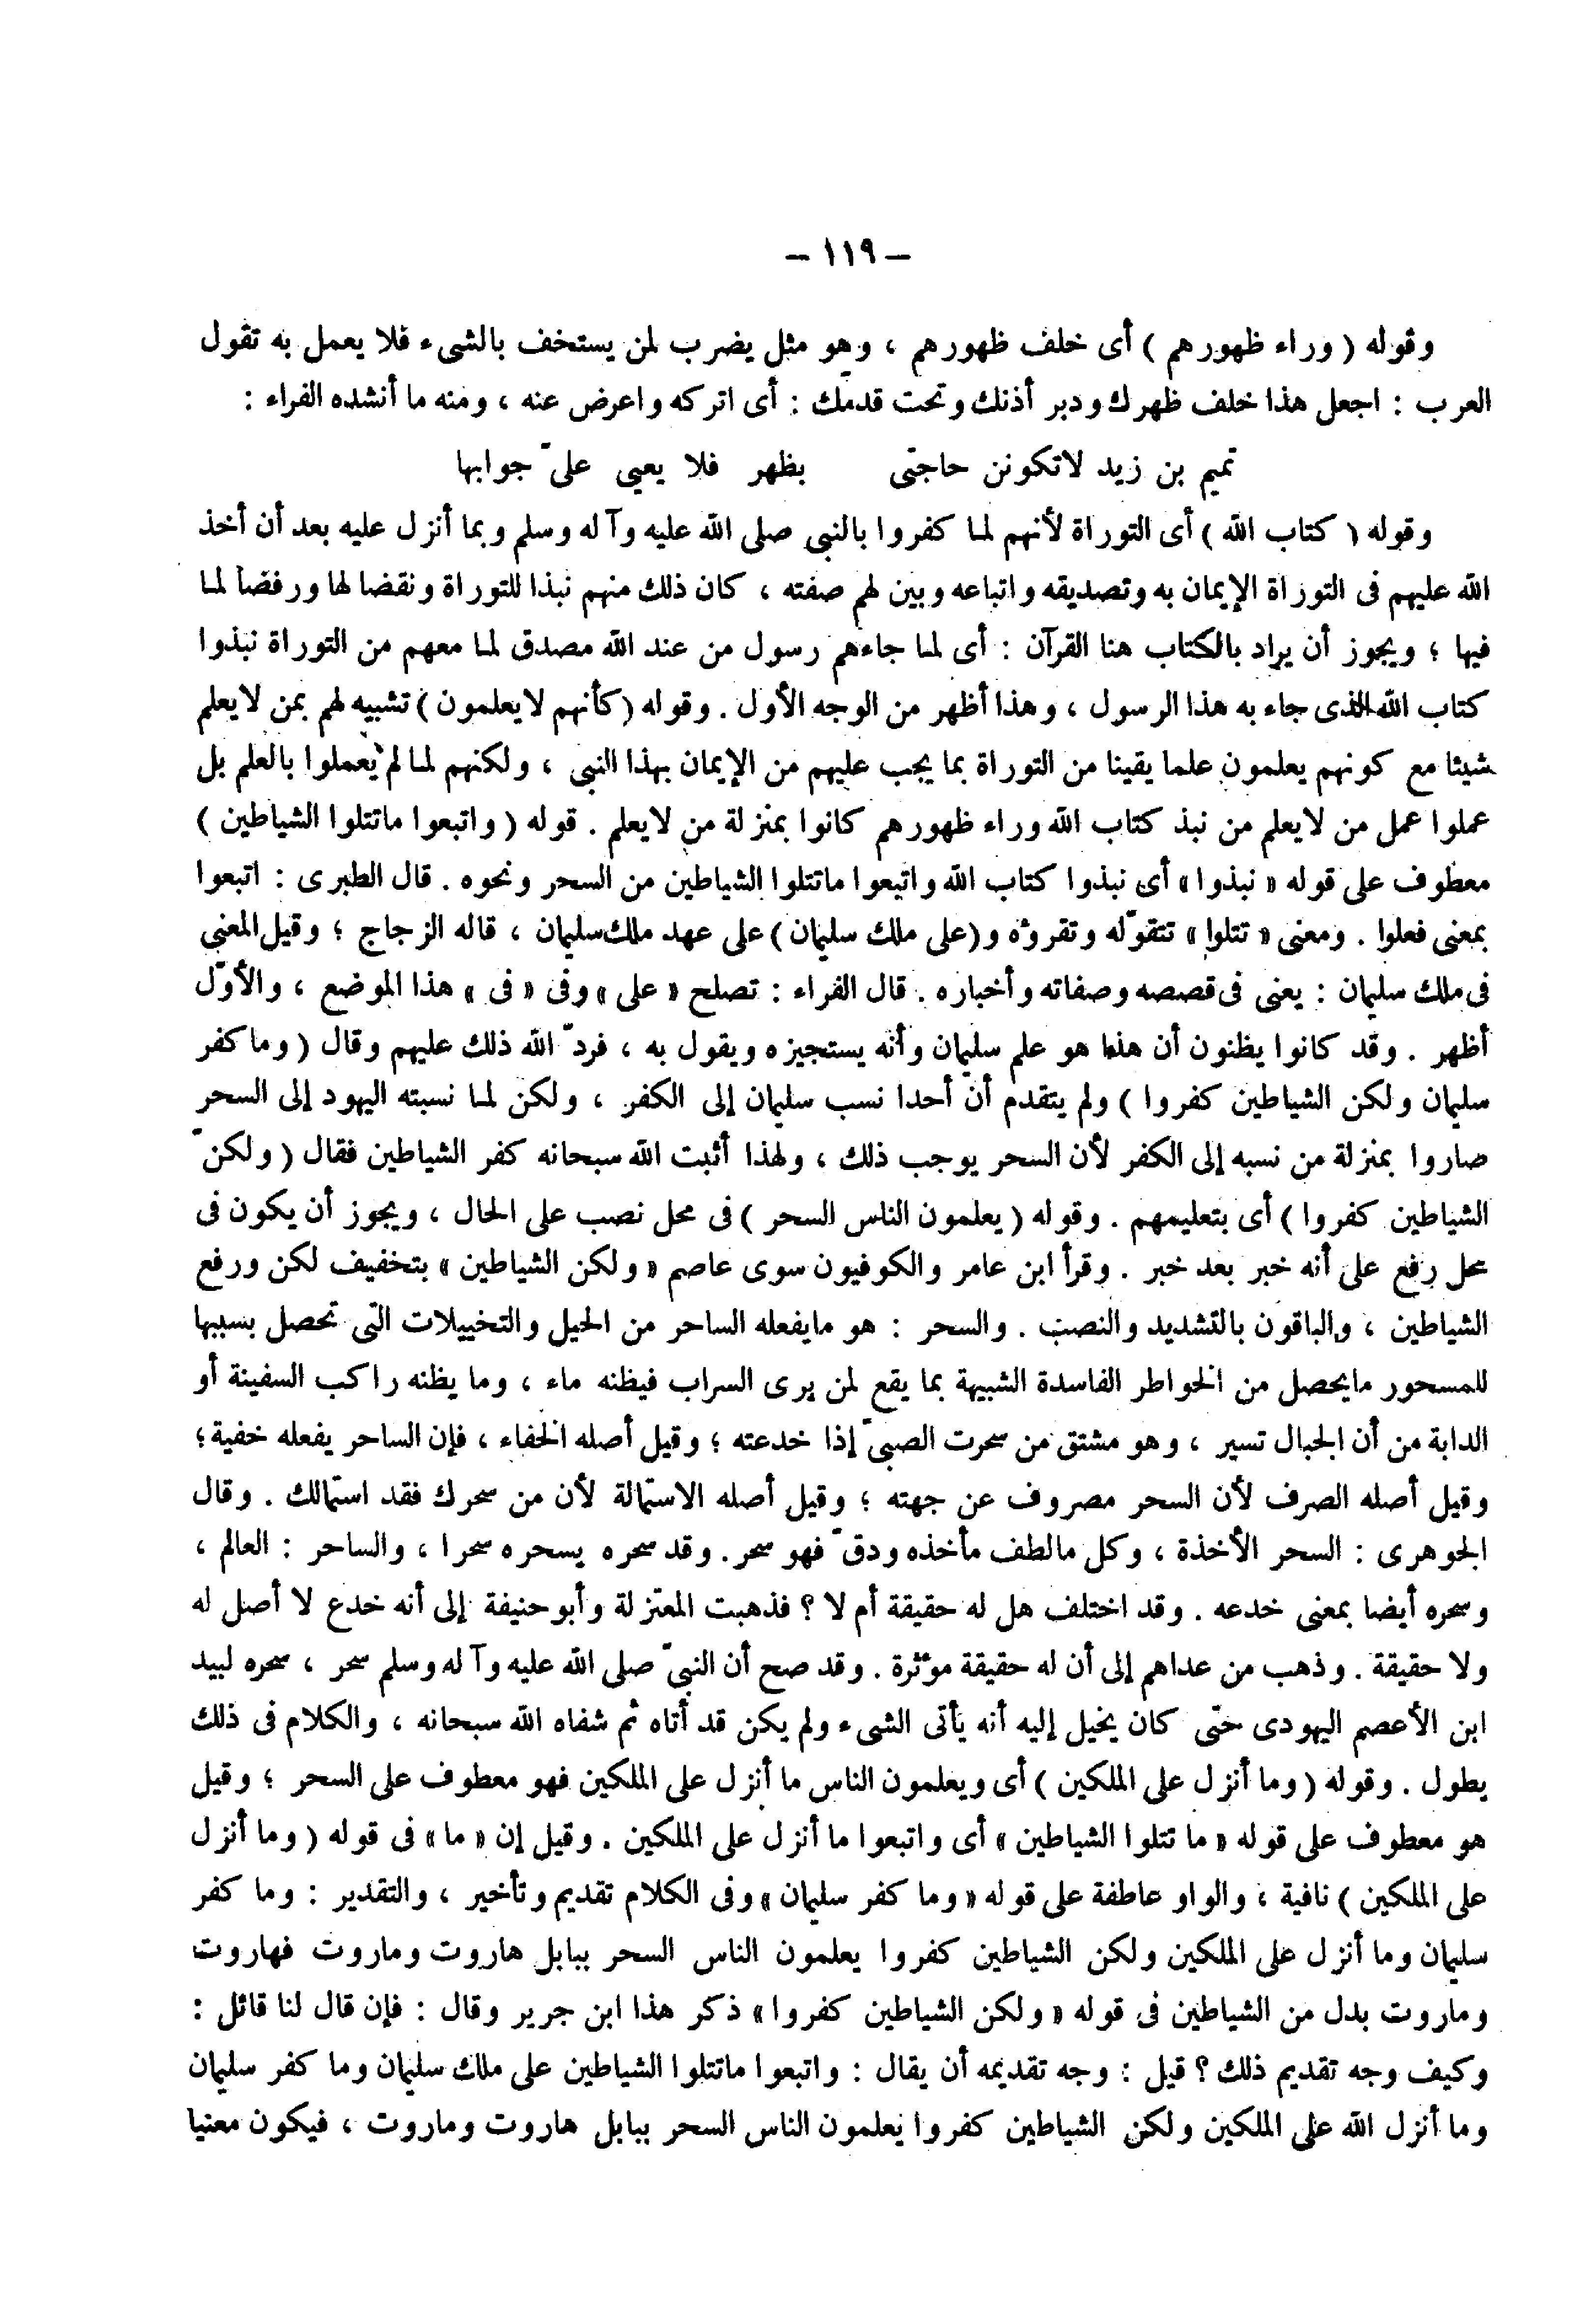 – ١١٩ –
وقوله ( وراء ظهورهم ) أى خلف ظهورهم ، وهو مثل يضرب لمن يستخف بالشىء فلا يعمل به تقول
العرب : اجعل هذا خلف ظهرك ودبر أذنك وتحت قدمك : أى اتركه واعرض عنه ، ومنه ما أنشده الفراء :
تميم بن زيد لاتكونن حاجتى بظهر فلا يعيى علىّ جوابها
وقوله ( كتاب الله ) أى التوراة لأنهم لما كفروا بالنبى صلى الله عليه وآله وسلم وبما أنزل عليه بعد أن أخذ
الله عليهم فى التوراة الإيمان به وتصديقه واتباعه وبين لهم صفته ، كان ذلك منهم نبذا للتوراة ونقضا لها ورفضا لما
فيها ؛ ويجوز أن يراد بالكتاب هنا القرآن : أى لما جاءهم رسول من عند الله مصدق لما معهم من التوراة نبذوا
كتاب الله الذى جاء به هذا الرسول ، وهذا أظهر من الوجه الأول . وقوله (كأنهم لايعلمون) تشبيه لهم بمن لايعلم
شيئا مع كونهم يعلمون علما يقينا من التوراة بما يجب عليهم من الإيمان بهذا النبى ، ولكنهم لما لم يعملوا بالعلم بل
عملوا عمل من لايعلم من نبذ كتاب الله وراء ظهورهم كانوا بمنزلة من لايعلم . قوله ( واتبعوا ماتتلوا الشياطين )
معطوف على قوله « نبذوا » أى نبذوا كتاب الله واتبعوا ماتتلوا الشياطين من السحر ونحوه . قال الطبرى : اتبعوا
بمعنى فعلوا . ومعنى « تتلوا » تتقوّله وتقرؤه و(على ملك سليمان) على عهد ملك سليمان ، قاله الزجاج ؛ وقيل المعنى
فى ملك سليمان : يعنى فى قصصه وصفاته وأخباره . قال الفراء : تصلح « على » وفى « فى » هذا الموضع ، والأوّل
أظهر . وقد كانوا يظنون أن هذا هو علم سليمان وأنه يستجيزه ويقول به ، فردّ الله ذلك عليهم وقال ( وما كفر
سليمان ولكن الشياطين كفروا ) ولم يتقدم أن أحدا نسب سليمان إلى الكفر ، ولكن لما نسبته اليهود إلى السحر
صاروا بمنزلة من نسبه إلى الكفر لأن السحر يوجب ذلك ، ولهذا أثبت الله سبحانه كفر الشياطين فقال ( ولكنّ
الشياطين كفروا ) أى بتعليمهم . وقوله ( يعلمون الناس السحر ) فى محل نصب على الحال ، ويجوز أن يكون فى
محل رفع على أنه خبر بعد خبر . وقرأ ابن عامر والكوفيون سوى عاصم « ولكن الشياطين » بتخفيف لكن ورفع
الشياطين ، والباقون بالتشديد والنصب . والسحر : هو مايفعله الساحر من الحيل والتخييلات التى تحصل بسببها
للمسحور مايحصل من الخواطر الفاسدة الشبيهة بما يقع لمن يرى السراب فيظنه ماء ، وما يظنه راكب السفينة أو
الدابة من أن الجبال تسير ، وهو مشتق من سحرت الصبىّ إذا خدعته ؛ وقيل أصله الخفاء ، فإن الساحر يفعله خفية ؛
وقيل أصله الصرف لأن السحر مصروف عن جهته ؛ وقيل أصله الاستمالة لأن من سحرك فقد استمالك . وقال
الجوهرى : السحر الأخذة ، وكل مالطف مأخذه ودقّ فهو سحر . وقد سحره يسحره سحرا ، والساحر : العالم ،
وسحره أيضا بمعنى خدعه . وقد اختلف هل له حقيقة أم لا ؟ فذهبت المعتزلة وأبو حنيفة إلى أنه خدع لا أصل له
ولا حقيقة . وذهب من عداهم إلى أن له حقيقة مؤثرة . وقد صح أن النبىّ صلى الله عليه وآله وسلم سحر ، سحره لبيد
ابن الأعصم اليهودى حتى كان يخيل إليه أنه يأتى الشىء ولم يكن قد أتاه ثم شفاه الله سبحانه ، والكلام فى ذلك
يطول . وقوله ( وما أنزل على الملكين ) أى ويعلمون الناس ما أنزل على الملكين فهو معطوف على السحر ؛ وقيل
هو معطوف على قوله « ما تتلوا الشياطين » أى واتبعوا ما أنزل على الملكين . وقيل إن « ما » فى قوله ( وما أنزل
على الملكين ) نافية ، والواو عاطفة على قوله « وما كفر سليمان » وفى الكلام تقديم وتأخير ، والتقدير : وما كفر
سليمان وما أنزل على الملكين ولكن الشياطين كفروا يعلمون الناس السحر ببابل هاروت وماروت فهاروت
وماروت بدل من الشياطين فى قوله « ولكن الشياطين كفروا » ذكر هذا ابن جرير وقال : فإن قال لنا قائل :
وكيف وجه تقديم ذلك ؟ قيل : وجه تقديمه أن يقال : واتبعوا ماتتلوا الشياطين على ملك سليمان وما كفر سليمان
وما أنزل الله على الملكين ولكن الشياطين كفروا يعلمون الناس السحر ببابل هاروت وماروت ، فيكون معنيا